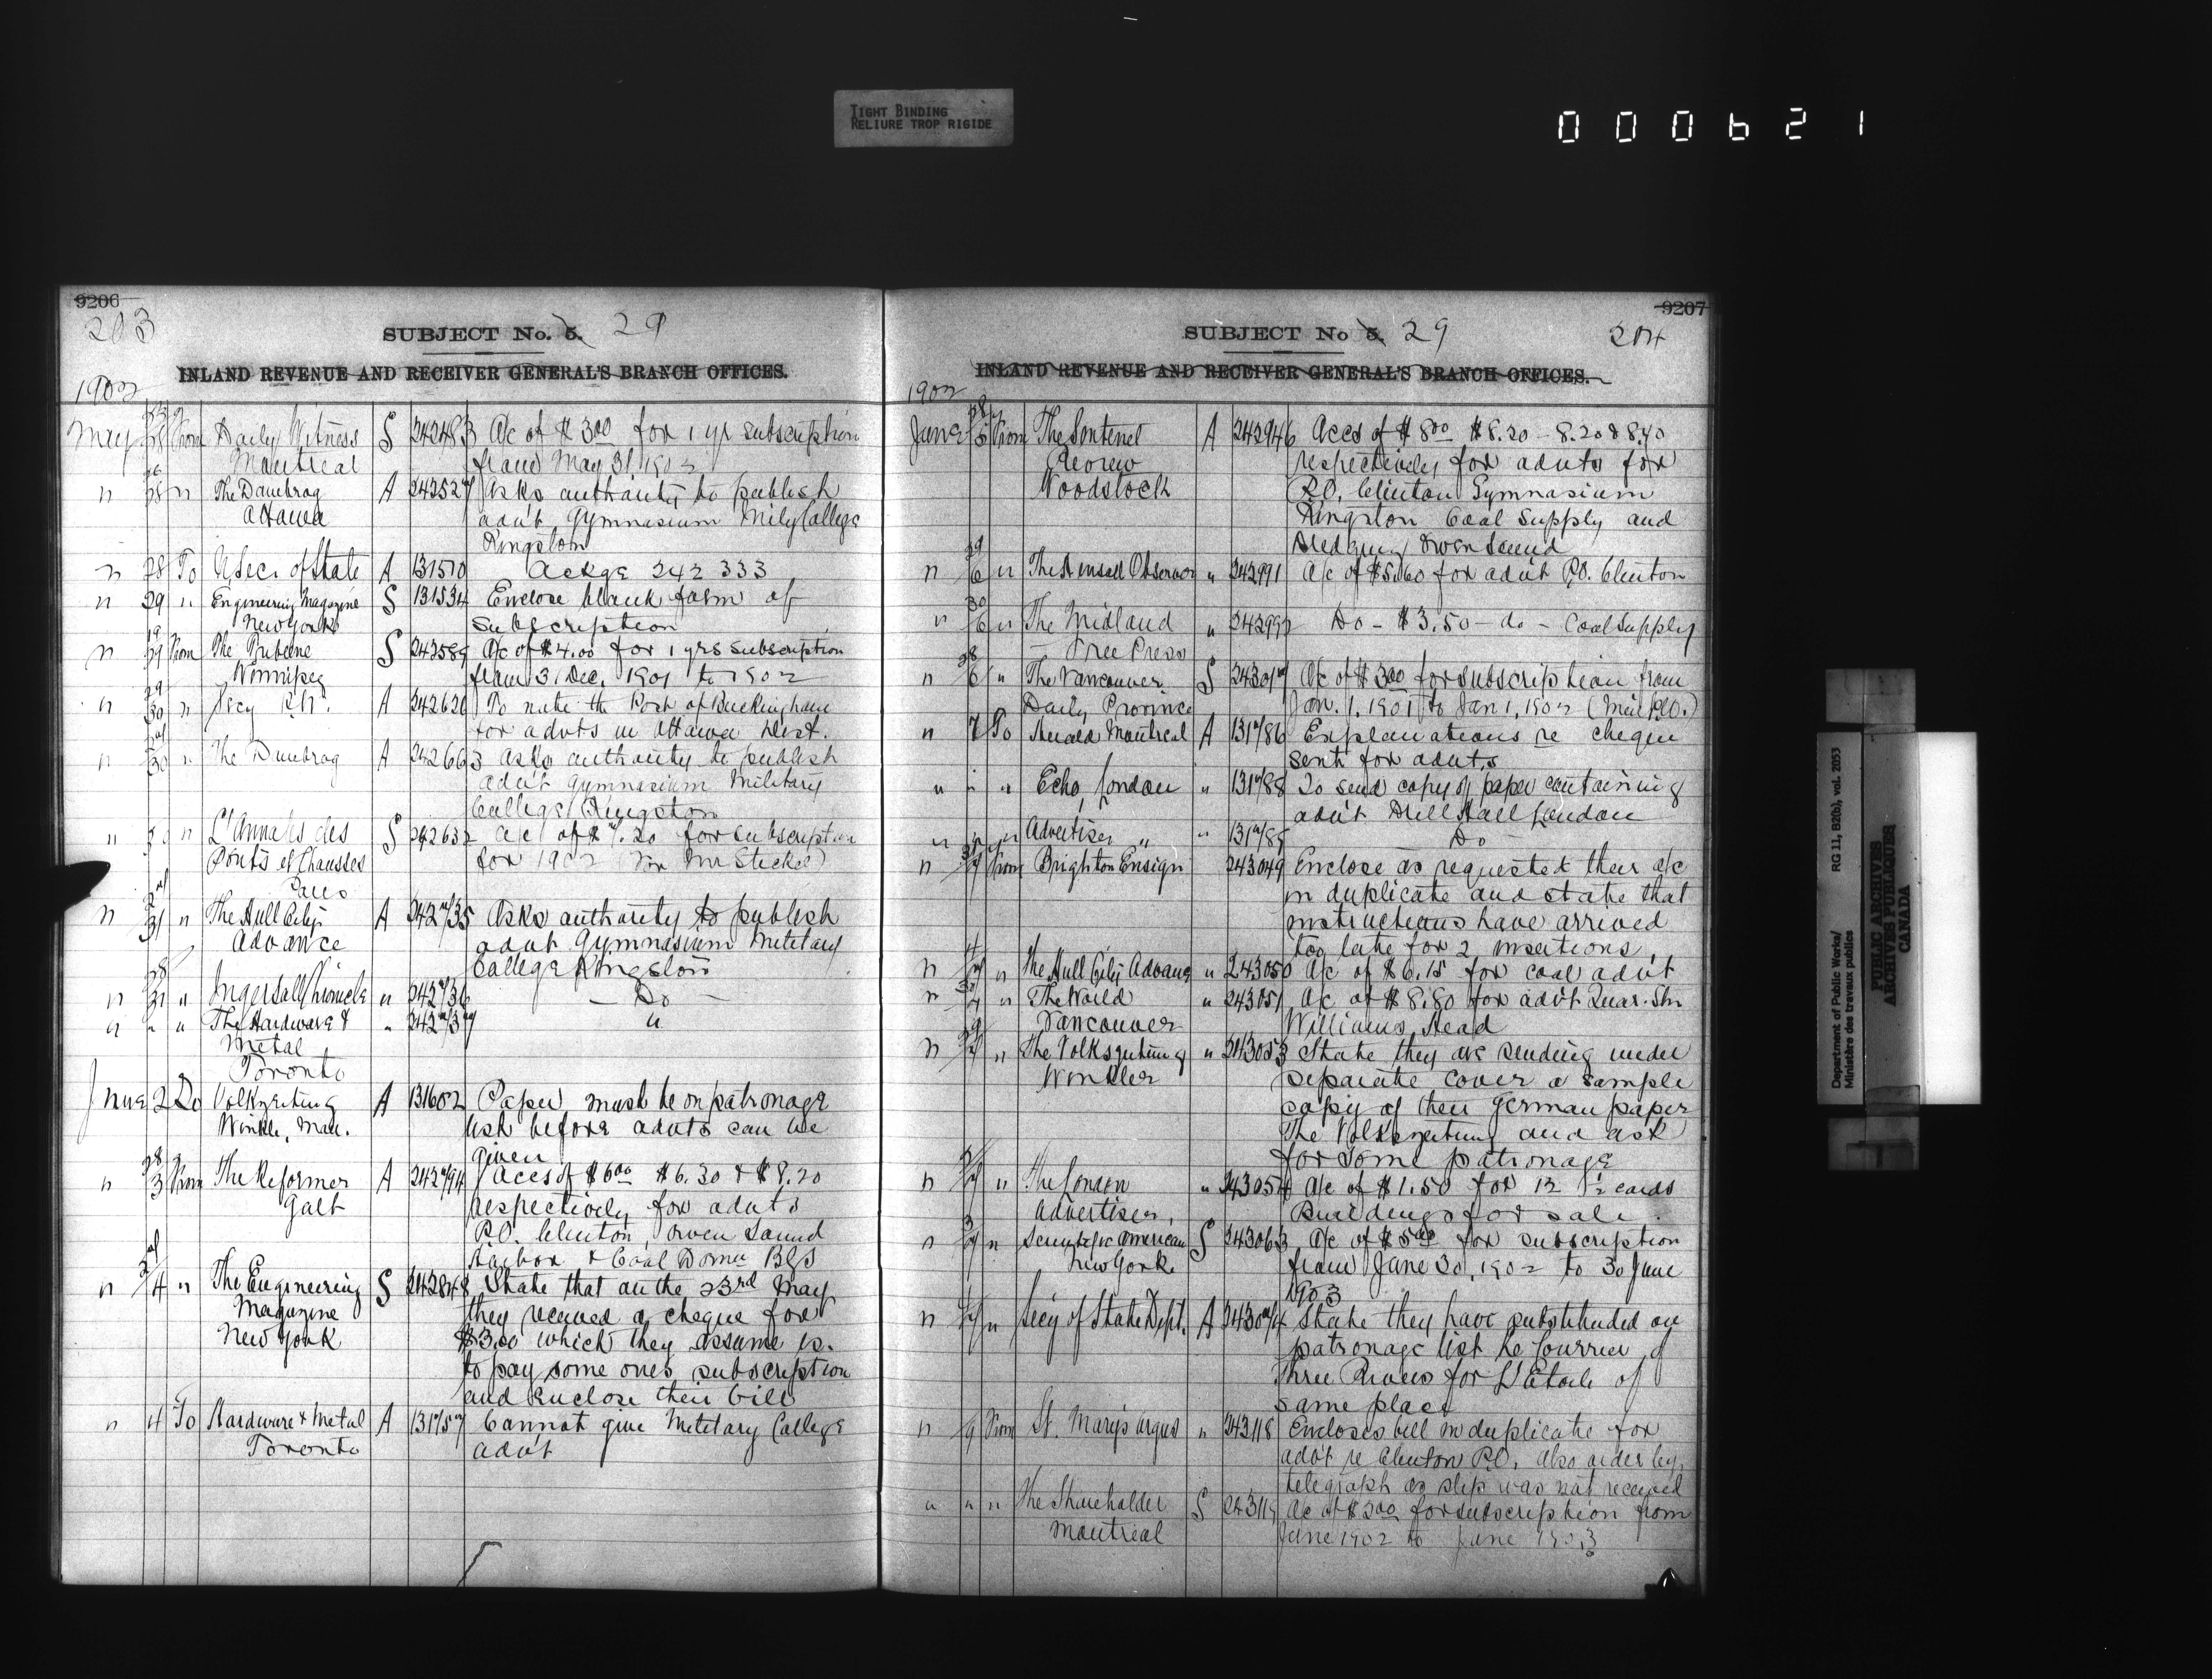 TIGHT BINDING
RELIURE TROP RIGIDE
000621
9206
203
SUBJECT No. 5. 29
INLAND REVENUE AND RECEIVER GENERAL'S BRANCH OFFICES.
1902
May 28 From Daily Witness S 242483 A/c of $3.00 for 1 yr subscription
Montreal from May 31 1902
" 28 " The A 242527 Asks authority to publish
Ottawa advt Gymnasium Mily College
Kingston
" 28 To U Secr of State A 131510 Ackge 242333
" 29 " Engineering Magazine S 131534 Enclose blank form of
New York subscription
" 29 From The Tribune S 242589 A/c of $4.00 for 1 yrs subscription
Winnipeg from 31 Dec. 1901 to 1902
" 30 " A 242620 To note the Post of Buckingham
for advts in Ottawa Dist.
" 30 " The A 242663 Asks authority to publish
advt Gymnasium Military
College Kingston
" 30 " L'Annales des S 242632 a/c of $ for subscription
Ponts et Chausses for 1902 (for Mr Steckel)
Paris
" 31 " The Hull City A 242735 Asks authority to publish
Advance advt Gymnasium Military
College Kingston
" 31 " Ingersoll Chronicle " 242736 — Do —
" " " The Hardware & " 242737 "
Metal
Toronto
June 2 Do Volkzeitung A 131602 Paper must be on patronage
Winkle, Man. list before advts can be
given
" 3 From The Reformer A 242794 Accs of $6.00 $6.30 & $8.20
Galt respectively for advts
P.O. Clinton, Owen Sound
Harbor & Coal Domn Blgs
" 4 " The Engineering S 242848 State that on the 23rd May
Magazine they received a cheque for
New York $3.00 which they assume is
to pay some ones subscription
and enclose their bill
" 4 To Hardware & Metal A 131757 Cannot give Military College
Toronto advt
9207
204
SUBJECT No 5. 29
INLAND REVENUE AND RECEIVER GENERAL'S BRANCH OFFICES.
1902
June 5 From The Sentinel A 242946 Accs of $8.00 $8.20 - 8.20 & 8.40
Review respectively for advts for
Woodstock P.O. Clinton Gymnasium
Kingston Coal Supply and
Dredging Owen Sound
" 6 " The Observer " 242991 A/c of $5.60 for advt P.O. Clinton
" 6 " The Midland " 242992 Do - $3.50 - do - Coal Supply
Free Press
" 6 " The Vancouver S 243017 A/c of $3.00 for subscription from
Daily Province Jan. 1, 1901 to Jan 1, 1902
" 7 To Herald Montreal A 131786 Explanations re cheque
sent for advts
" " " Echo, London " 131788 To send copy of paper containing
advt Drill Hall London
" " " Advertiser " " 131789 Do
" 7 From Brighton Ensign 243049 Enclose as requested their a/c
in duplicate and state that
instructions have arrived
too late for 2 insertions
" 7 " The Hull City Advance " 243050 A/c of $6.15 for coal advt
" 7 " The World " 243051 A/c of $8.80 for advt Quar. Stn
Vancouver Williams Head
" 7 " The Volkszeitung " 243053 State they are sending under
Winkler separate cover a sample
copy of their German paper
The Volkszeitung and ask
for some patronage
" 7 " The London " 243054 A/c of $1.50 for 12 ½ cards
Advertiser, Buildings for sale.
" 7 " Scientific American S 243063 A/c of $5.00 for subscription
New York from June 30, 1902 to 30 June
1903
" 7 " Secy of State Dept. A 243074 State they have substituted on
patronage list Le Courrier of
Three Rivers for L'Etoile of
same place
" 9 From St. Mary's Argus " 243118 Encloses bill in duplicate for
advt re Clinton P.O. Also order by
telegraph as slip was not received
" " " The Shareholder S 243119 A/c of $3.00 for subscription from
Montreal June 1902 to June 1903
Department of Public Works/ RG 11, B2(b), vol. 2053
Ministère des travaux publics
PUBLIC ARCHIVES
ARCHIVES PUBLIQUES
CANADA